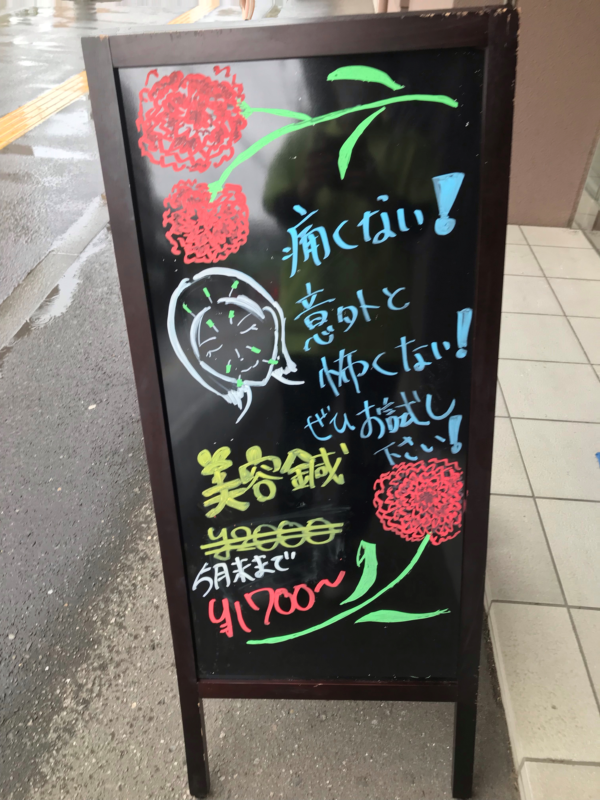 痛くない!
意外と
怖くない!
ぜひお試し
下さい!
美容鍼
¥2000
5月末まで
¥1700〜